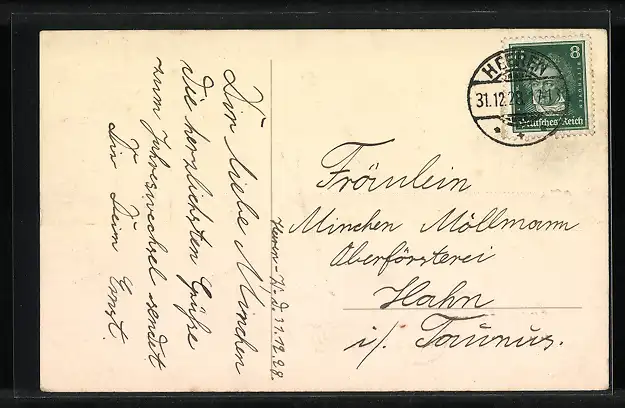 Dir liebe Minchen
die herzlichsten Grüße
zum Jahreswechsel sendet
Dir Dein Ernst.
Heeren-W. d. 31.12.28.
Fräulein
Minchen Möllmann
Oberförsterei
Hahn
i/. Taunus.
HEEREN
31.12.28
8
BEETHOVEN
Deutsches Reich